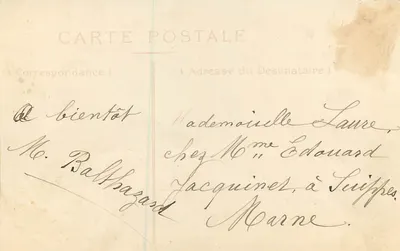 CARTE POSTALE
(Correspondance)
(Adresse du Destinataire)
A bientôt
M. Balthazard
Mademoiselle Laure,
chez Mme Edouard
Jacquinet, à Suippes.
Marne.